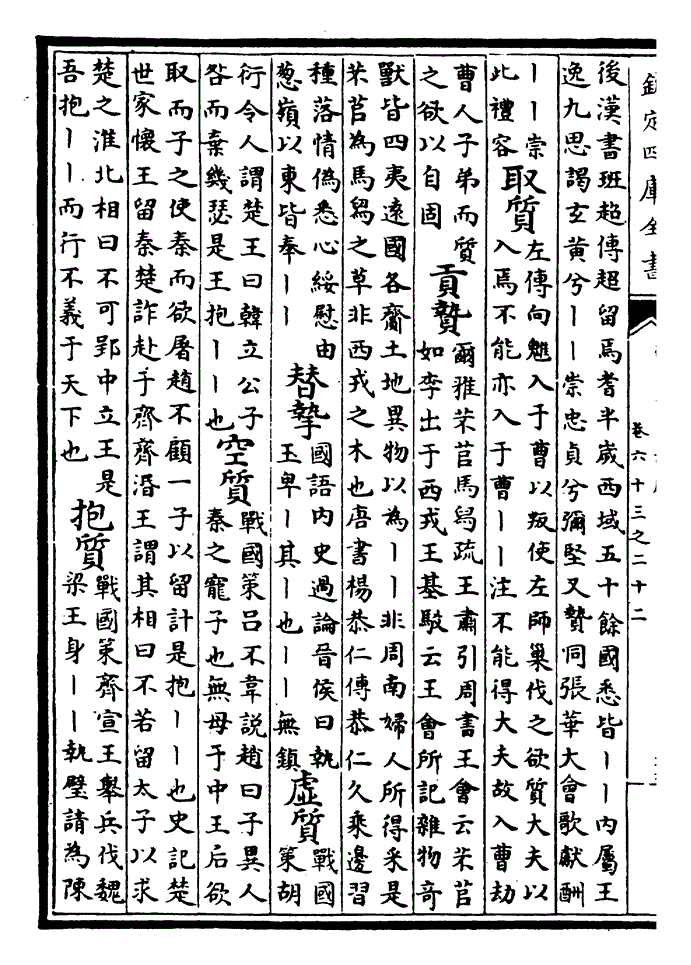 欽定四庫全書
卷六十三之二十二
後漢書班超傳超留焉耆半歲西域五十餘國悉皆丨丨内屬王
逸九思謁玄黄兮丨丨崇忠貞兮彌堅又贄同張華大會歌獻酬
丨丨崇
此禮容
取質
左傳向魋入于曹以叛使左師巢伐之欲質大夫以
入焉不能亦入于曹丨丨注不能得大夫故入曹劫
曹人子弟而質
之欲以自固
貢贄
爾雅芣苢馬舄疏王肅引周書王會云芣苢
如李出于西戎王基駁云王會所記雜物奇
獸皆四夷遠國各齎土地異物以為丨丨非周南婦人所得采是
芣苢為馬舄之草非西戎之木也唐書楊恭仁傳恭仁久乘邊習
種落情偽悉心綏慰由
葱嶺以東皆奉丨丨
替摯
國語内史過論晉侯曰執
玉卑丨其丨也丨丨無鎮
虛質
戰國
策胡
衍令人謂楚王曰韓立公子
咎而棄幾瑟是王抱丨丨也
空質
戰國策吕不韋説趙曰子異人
秦之寵子也無母于中王后欲
取而子之使秦而欲屠趙不顧一子以留計是抱丨丨也史記楚
世家懷王留秦楚詐赴于齊齊湣王謂其相曰不若留太子以求
楚之淮北相曰不可郢中立王是
吾抱丨丨而行不義于天下也
抱質
戰國策齊宣王舉兵伐魏
梁王身丨丨執璧請為陳